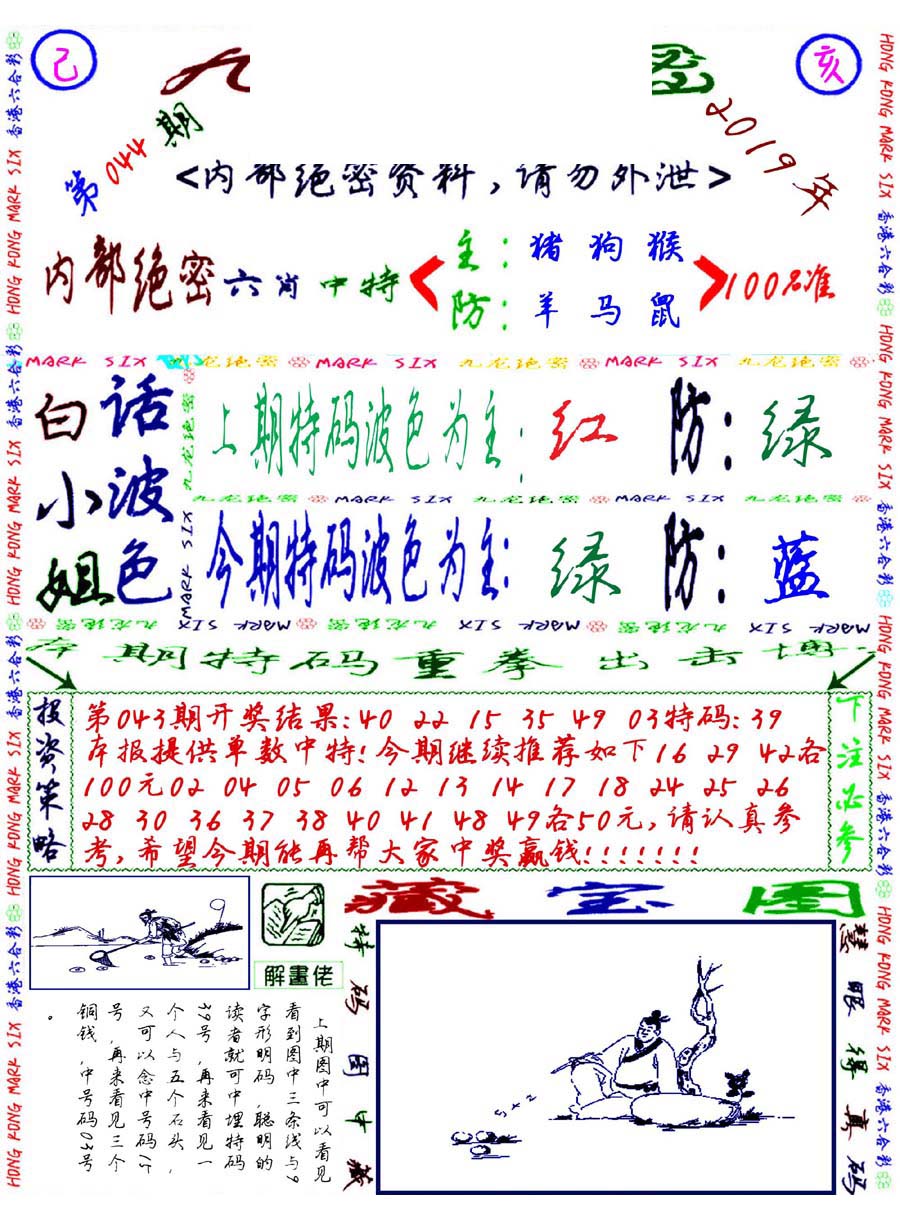 己
亥
第044期
2019年
<内部绝密资料,请勿外泄>
内部绝密六肖中特
主:猪 狗 猴
防:羊 马 鼠
100%准
MARK SIX 九龙绝密 MARK SIX 九龙绝密 MARK SIX 九龙绝密 MARK SIX
白话
小波
姐色
上期特码波色为主:红 防:绿
九龙绝密 MARK SIX 九龙绝密 MARK SIX 九龙绝密
今期特码波色为主:绿 防:蓝
期特码重拳出击
投资策略
第043期开奖结果:40 22 15 35 49 03特码:39
本报提供单数中特!今期继续推荐如下16 29 42各
100元02 04 05 06 12 13 14 17 18 24 25 26
28 30 36 37 38 40 41 48 49各50元,请认真参
考,希望今期能再帮大家中奖赢钱!!!!!!!
下注必参
藏宝图
解畫佬
上期图中可以看见
看到图中三条线与9
字形明码,聪明的
读者就可中埋特码
39号,再来看见一
个人与五个石头,
又可以念中号码15
号,再来看见三个
铜钱,中号码03号
。
特码图中藏
5+2
慧眼得真码
HONG KONG MARK SIX 香港六合彩